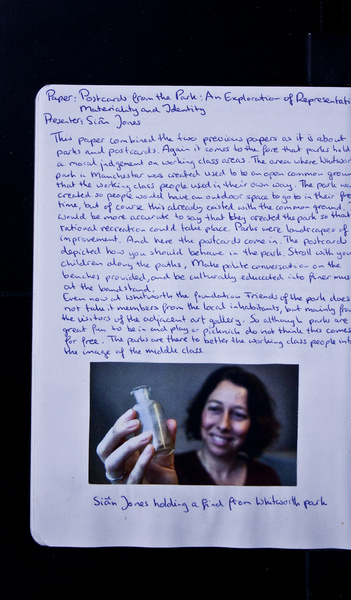 Paper: Postcards from the Park: An Exploration of Representati
Materiality and Identity
Presenter: Siân Jones
This paper combined the two previous papers as it is about
parks and postcards. Again it comes to the fore that parks hold
a moral judgement on working class areas. The area where Whitwor
park in Manchester was created used to be an open common groun
that the working class people used in their own way. The park was
created so people would have an outdoor space to go to in their fre
time, but of course this already existed with the common ground.
would be more accurate to say that they created the park so that
rational recreation could take place. Parks were landscapes of
improvement. And here the postcards come in. The postcards
depicted how you should behave in the park. Stroll with you
children along the paths, Make polite conversation on the
benches provided, and be culturally educated into finer mus
at the bandstand.
Even now at Whitworth the foundation Friends of the park does
not take it members from the local inhabitants, but mainly fro
the visitors of the adjacent art gallery. So although parks are
great fun to be in and play or picknick do not think this comes
for free. The parks are there to better the working class people into
the image of the middle class.
Siân Jones holding a find from Whitworth park